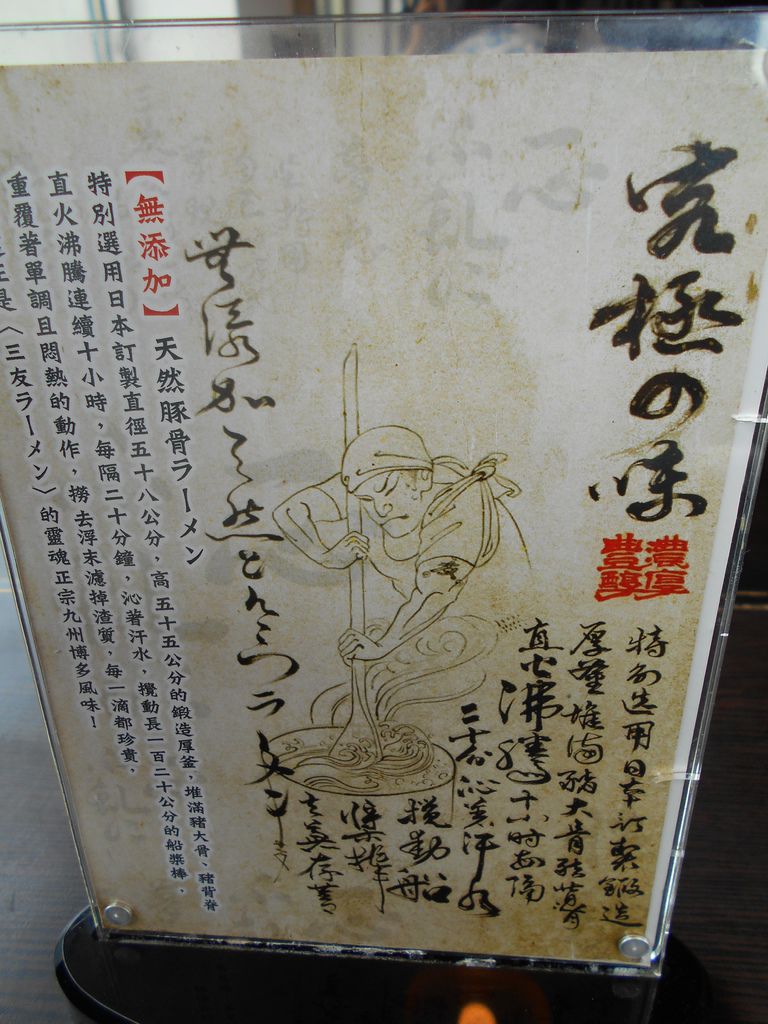 究極の味
濃厚
豊醇
特別选用日本訂製鍛造
厚釜堆滿豬大骨豬背骨
直火沸騰十小時每隔
二十分沁著汗水
攪動船
槳棒
無添加天然とんこつラーメン
【無添加】天然豚骨ラーメン
特別選用日本訂製直徑五十八公分,高五十五公分的鍛造厚釜,堆滿豬大骨、豬背脊
直火沸騰連續十小時,每隔二十分鐘,沁著汗水,攪動長一百二十公分的船槳棒,
重覆著單調且悶熱的動作,撈去浮末濾掉渣質,每一滴都珍貴,
是〈三友ラーメン〉的靈魂正宗九州博多風味!